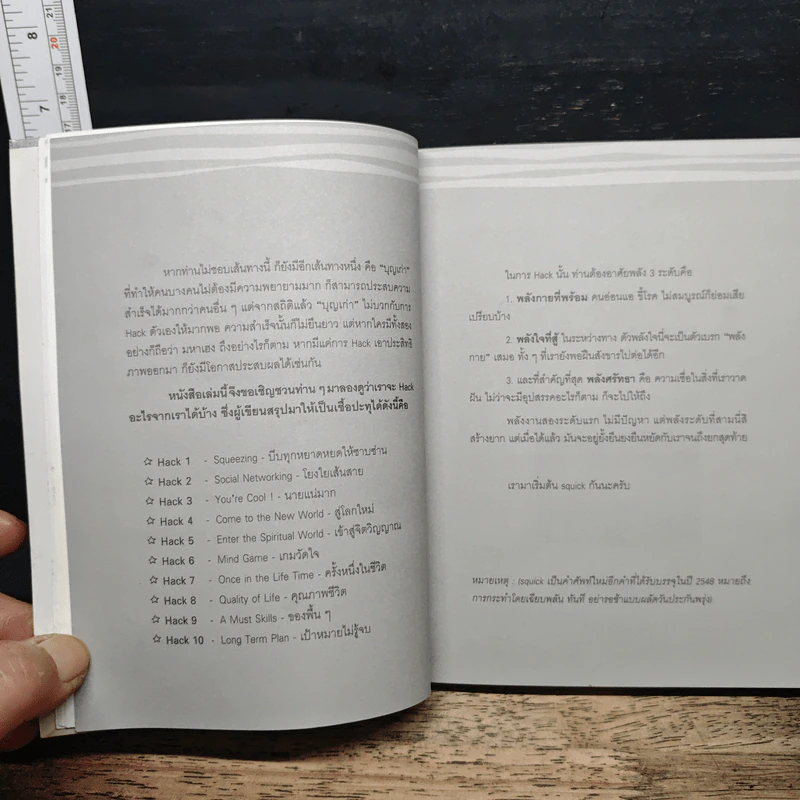 8
7
21
20
19
18
17
หากท่านไม่ชอบเส้นทางนี้ ก็ยังมีอีกเส้นทางหนึ่ง คือ “บุญเก่า”
ที่ทำให้คนบางคนไม่ต้องมีความพยายามมาก ก็สามารถประสบความ
สำเร็จได้มากกว่าคนอื่น ๆ แต่จากสถิติแล้ว “บุญเก่า” ไม่บวกกับการ
Hack ตัวเองให้มากพอ ความสำเร็จนั้นก็ไม่ยืนยาว แต่หากใครมีทั้งสอง
อย่างก็ถือว่า มหาเฮง ถึงอย่างไรก็ตาม หากมีแค่การ Hack เอาประสิทธิ
ภาพออกมา ก็ยังมีโอกาสประสบผลได้เช่นกัน
หนังสือเล่มนี้จึงขอเชิญชวนท่าน ๆ มาลองดูว่าเราจะ Hack
อะไรจากเราได้บ้าง ซึ่งผู้เขียนสรุปมาให้เป็นเชื้อปะทุได้ดังนี้คือ
☆ Hack 1 - Squeezing - บีบทุกหยาดหยดให้ซาบซ่าน
☆ Hack 2 - Social Networking - โยงใยเส้นสาย
☆ Hack 3 - You're Cool ! - นายแน่มาก
☆ Hack 4 - Come to the New World - สู่โลกใหม่
☆ Hack 5 - Enter the Spiritual World - เข้าสู่จิตวิญญาณ
☆ Hack 6 - Mind Game - เกมวัดใจ
☆ Hack 7 - Once in the Life Time - ครั้งหนึ่งในชีวิต
☆ Hack 8 - Quality of Life - คุณภาพชีวิต
☆ Hack 9 - A Must Skills - ของพื้น ๆ
☆ Hack 10 - Long Term Plan - เป้าหมายไม่รู้จบ
ในการ Hack นั้น ท่านต้องอาศัยพลัง 3 ระดับคือ
1. พลังกายที่พร้อม คนอ่อนแอ ขี้โรค ไม่สมบูรณ์ก็ย่อมเสีย
เปรียบบ้าง
2. พลังใจที่สู้ ในระหว่างทาง ตัวพลังใจนี่จะเป็นตัวเบรก “พลัง
กาย” เสมอ ทั้ง ๆ ที่เรายังพอฝืนสังขารไปต่อได้อีก
3. และที่สำคัญที่สุด พลังศรัทธา คือ ความเชื่อในสิ่งที่เราวาด
ฝัน ไม่ว่าจะมีอุปสรรคอะไรก็ตาม ก็จะไปให้ถึง
พลังงานสองระดับแรก ไม่มีปัญหา แต่พลังระดับที่สามนี่สิ
สร้างยาก แต่เมื่อได้แล้ว มันจะอยู่ยั้งยืนยงยืนหยัดกับเราจนถึงยกสุดท้าย
เรามาเริ่มต้น squick กันนะครับ
หมายเหตุ : (squick เป็นคำศัพท์ใหม่อีกคำที่ได้รับบรรจุในปี 2548 หมายถึง
การกระทำโดยเฉียบพลัน ทันที อย่ารอช้าแบบผลัดวันประกันพรุ่ง)